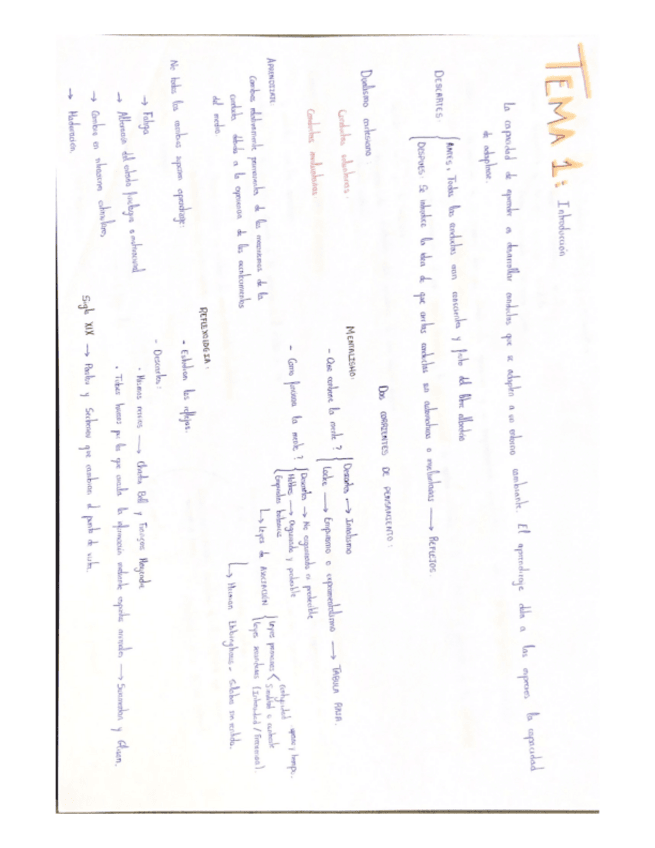 TEMA 1: Introducción
La capacidad de aprender es desarrollar conductas que se adapten a un entorno cambiante. El aprendizaje dota a las especies la capacidad
de adaptarse.
DESCARTES:
ANTES: Todas las conductas eran conscientes y fruto del libre albedrío
DESPUES: Se introduce la idea de que ciertas conductas son automáticas o involuntarias → REFLEJOS.
DOS CORRIENTES DE PENSAMIENTO:
Dualismo cartesiano:
Conductas voluntarias:
Conductas involuntarias
MENTALISMO:
- Que contiene la mente?
Descartes → Innatismo
Locke → Empirismo o experimentalismo → TABULA RASA.
- Como funciona la mente?
Descartes → No organizada ni predecible
Hobbes → Organizada y predecible
Empiristas británicos
↳ Leyes de ASOCIACIÓN
Leyes primarias
contigüidad espacio y tiempo.
Similitud o contraste
Leyes secundarias (Intensidad / Frecuencia)
↳ Herman Ebbinghaus - sílabas sin sentido.
APRENDIZAJE:
Cambios relativamente permanentes de los mecanismos de la
conducta debido a la experiencia de los acontecimientos
del medio.
No todos los cambios suponen aprendizaje:
→ Fatiga
→ Alteración del estado fisiológico o motivacional
→ Cambio en situaciones estimulares
→ Maduración.
REFLEXOLOGIA:
- Estudian los reflejos.
- Descartes:
· Mismos nervios → Charles Bell y François Magendie
· Tubos huecos por los que circula la información mediante espíritus animales → Swammerdam y Glisson.
Siglo XIX → Pavlov y Sechenov que cambiaron el punto de vista.